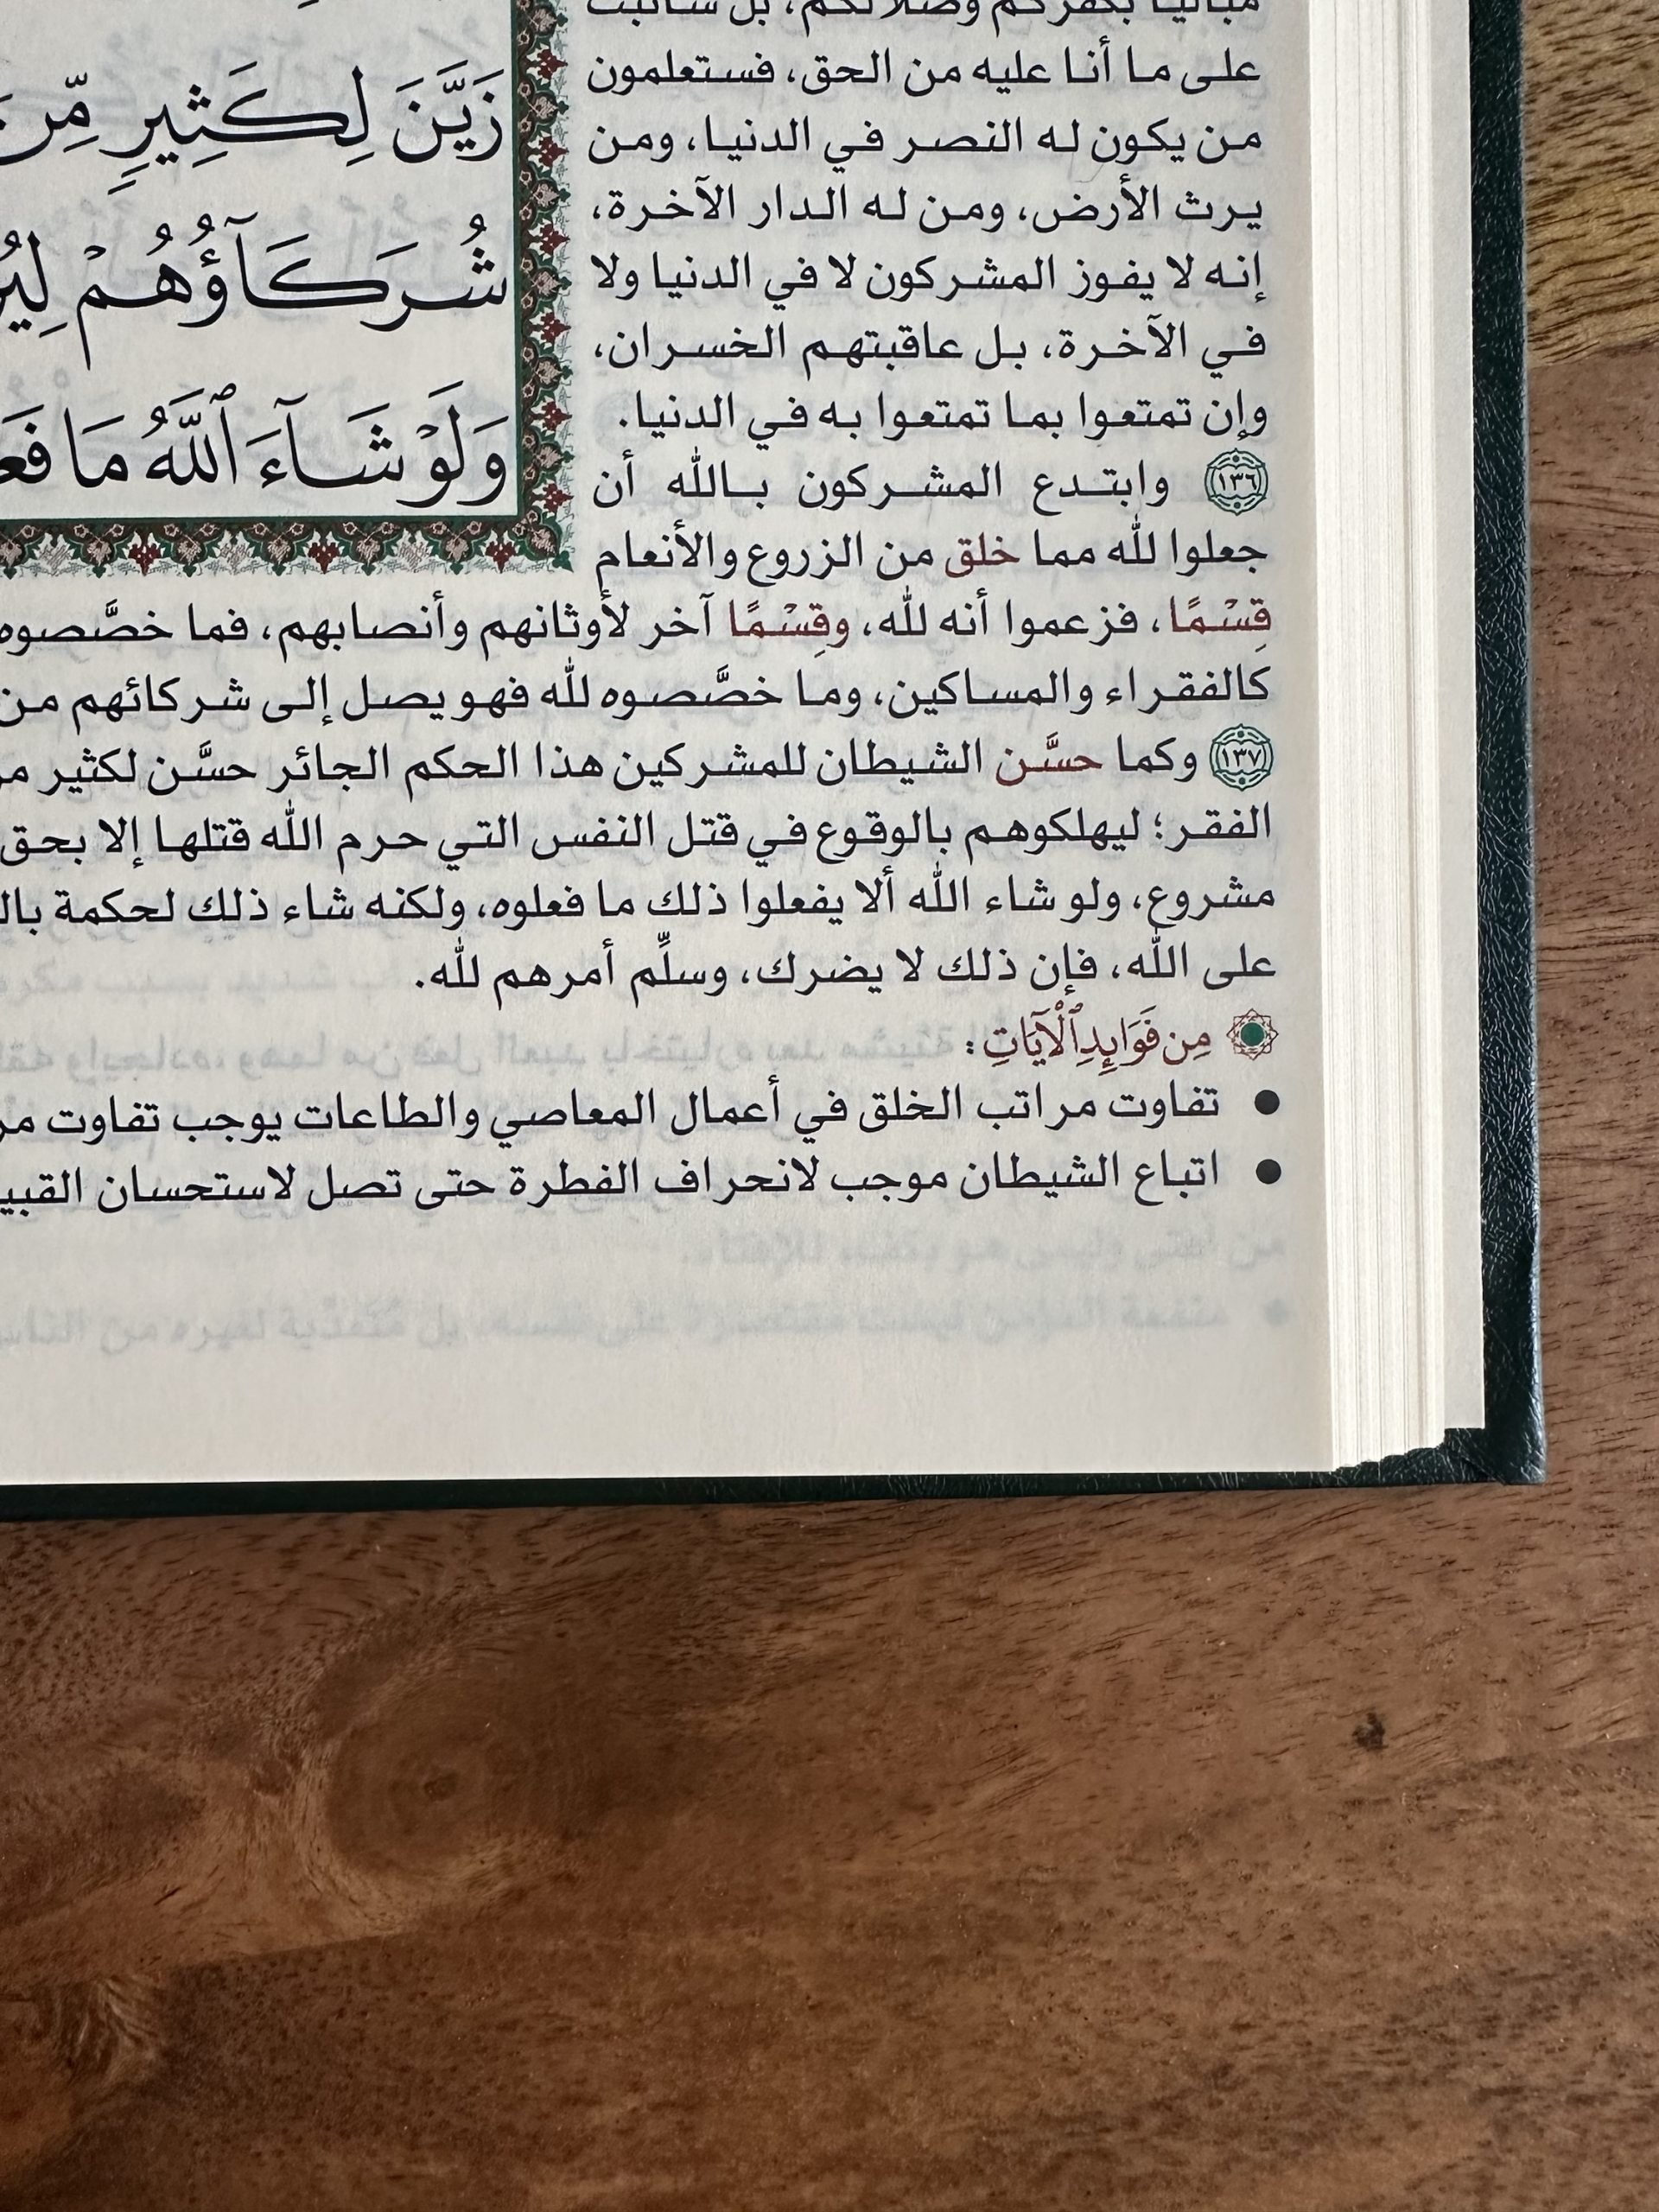 زَيَّنَ لِكَثِيرٍ مِّنَ
شُرَكَآؤُهُمْ
وَلَوْ شَآءَ ٱللَّهُ مَا
على ما أنا عليه من الحق، فستعلمون
من يكون له النصر في الدنيا، ومن
يرث الأرض، ومن له الدار الآخرة،
إنه لا يفوز المشركون لا في الدنيا ولا
في الآخرة، بل عاقبتهم الخسران،
وإن تمتعوا بما تمتعوا به في الدنيا.
١٣٦ وابتدع المشركون بالله أن
جعلوا لله مما خلق من الزروع والأنعام
قِسْمًا، فزعموا أنه لله، وقِسْمًا آخر لأوثانهم وأنصابهم، فما خصَّصوه
كالفقراء والمساكين، وما خصَّصوه لله فهو يصل إلى شركائهم من
١٣٧ وكما حسَّن الشيطان للمشركين هذا الحكم الجائر حسَّن لكثير
الفقر؛ ليهلكوهم بالوقوع في قتل النفس التي حرم الله قتلها إلا بحق
مشروع، ولو شاء الله ألا يفعلوا ذلك ما فعلوه، ولكنه شاء ذلك لحكمة
على الله، فإن ذلك لا يضرك، وسلِّم أمرهم لله.
مِن فَوَائِدِ ٱلْآيَاتِ:
● تفاوت مراتب الخلق في أعمال المعاصي والطاعات يوجب تفاوت
● اتباع الشيطان موجب لانحراف الفطرة حتى تصل لاستحسان